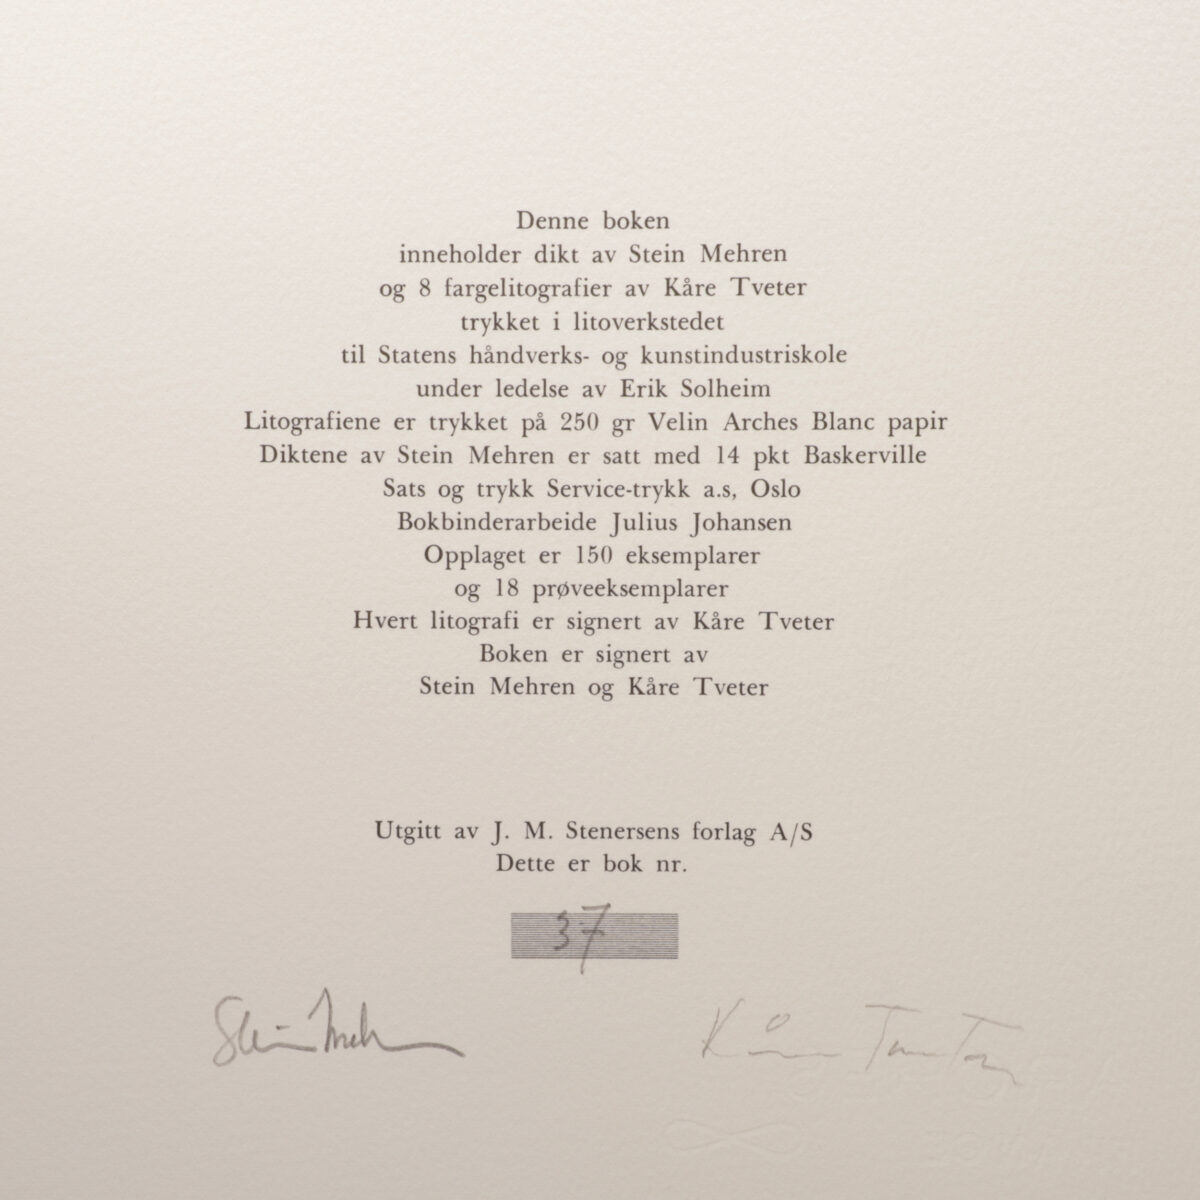 Denne boken
inneholder dikt av Stein Mehren
og 8 fargelitografier av Kåre Tveter
trykket i litoverkstedet
til Statens håndverks- og kunstindustriskole
under ledelse av Erik Solheim
Litografiene er trykket på 250 gr Velin Arches Blanc papir
Diktene av Stein Mehren er satt med 14 pkt Baskerville
Sats og trykk Service-trykk a.s, Oslo
Bokbinderarbeide Julius Johansen
Opplaget er 150 eksemplarer
og 18 prøveeksemplarer
Hvert litografi er signert av Kåre Tveter
Boken er signert av
Stein Mehren og Kåre Tveter
Utgitt av J. M. Stenersens forlag A/S
Dette er bok nr.
37
Stein Mehren Kåre Tveter